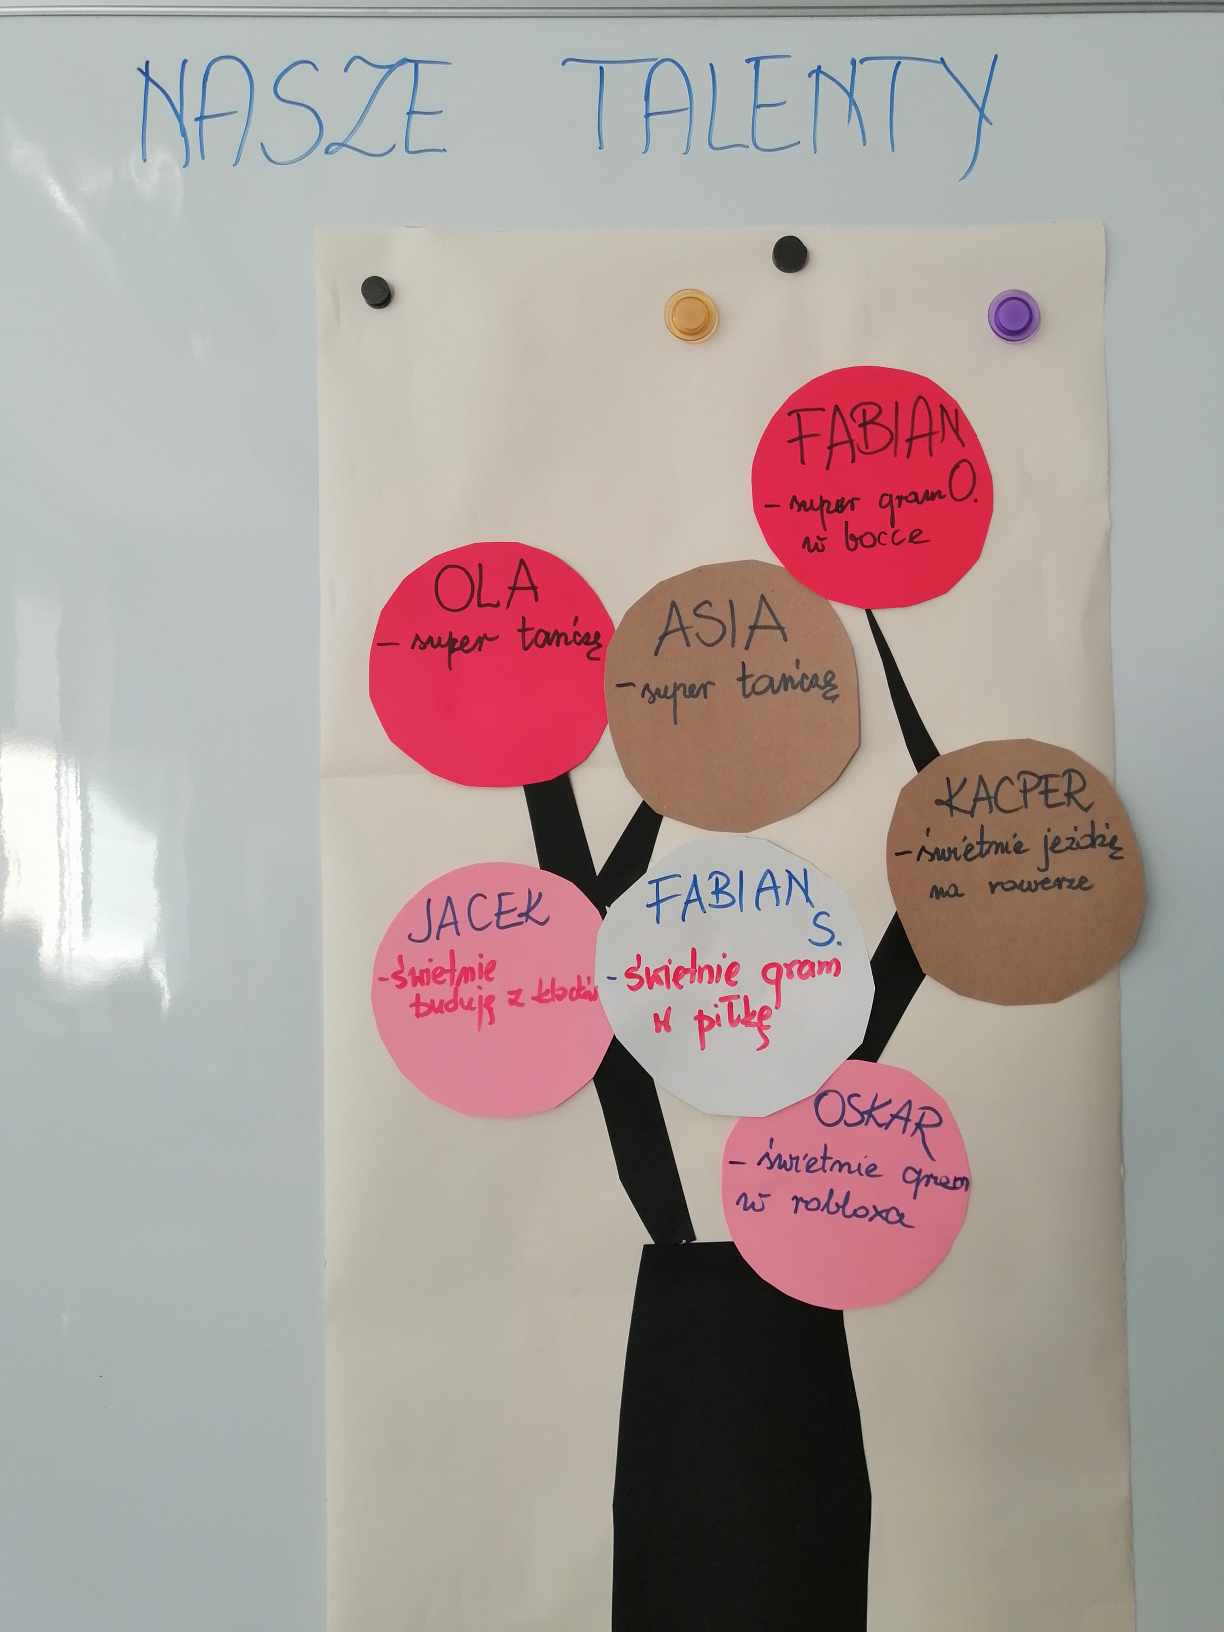 NASZE TALENTY
FABIAN O.
- super gram
w bocce
OLA
- super tańczę
ASIA
- super tańczę
KACPER
- świetnie jeżdżę
na rowerze
JACEK
- świetnie
buduję z
FABIAN
S.
- świetnie gram
w piłkę
OSKAR
- świetnie gram
w robloxa